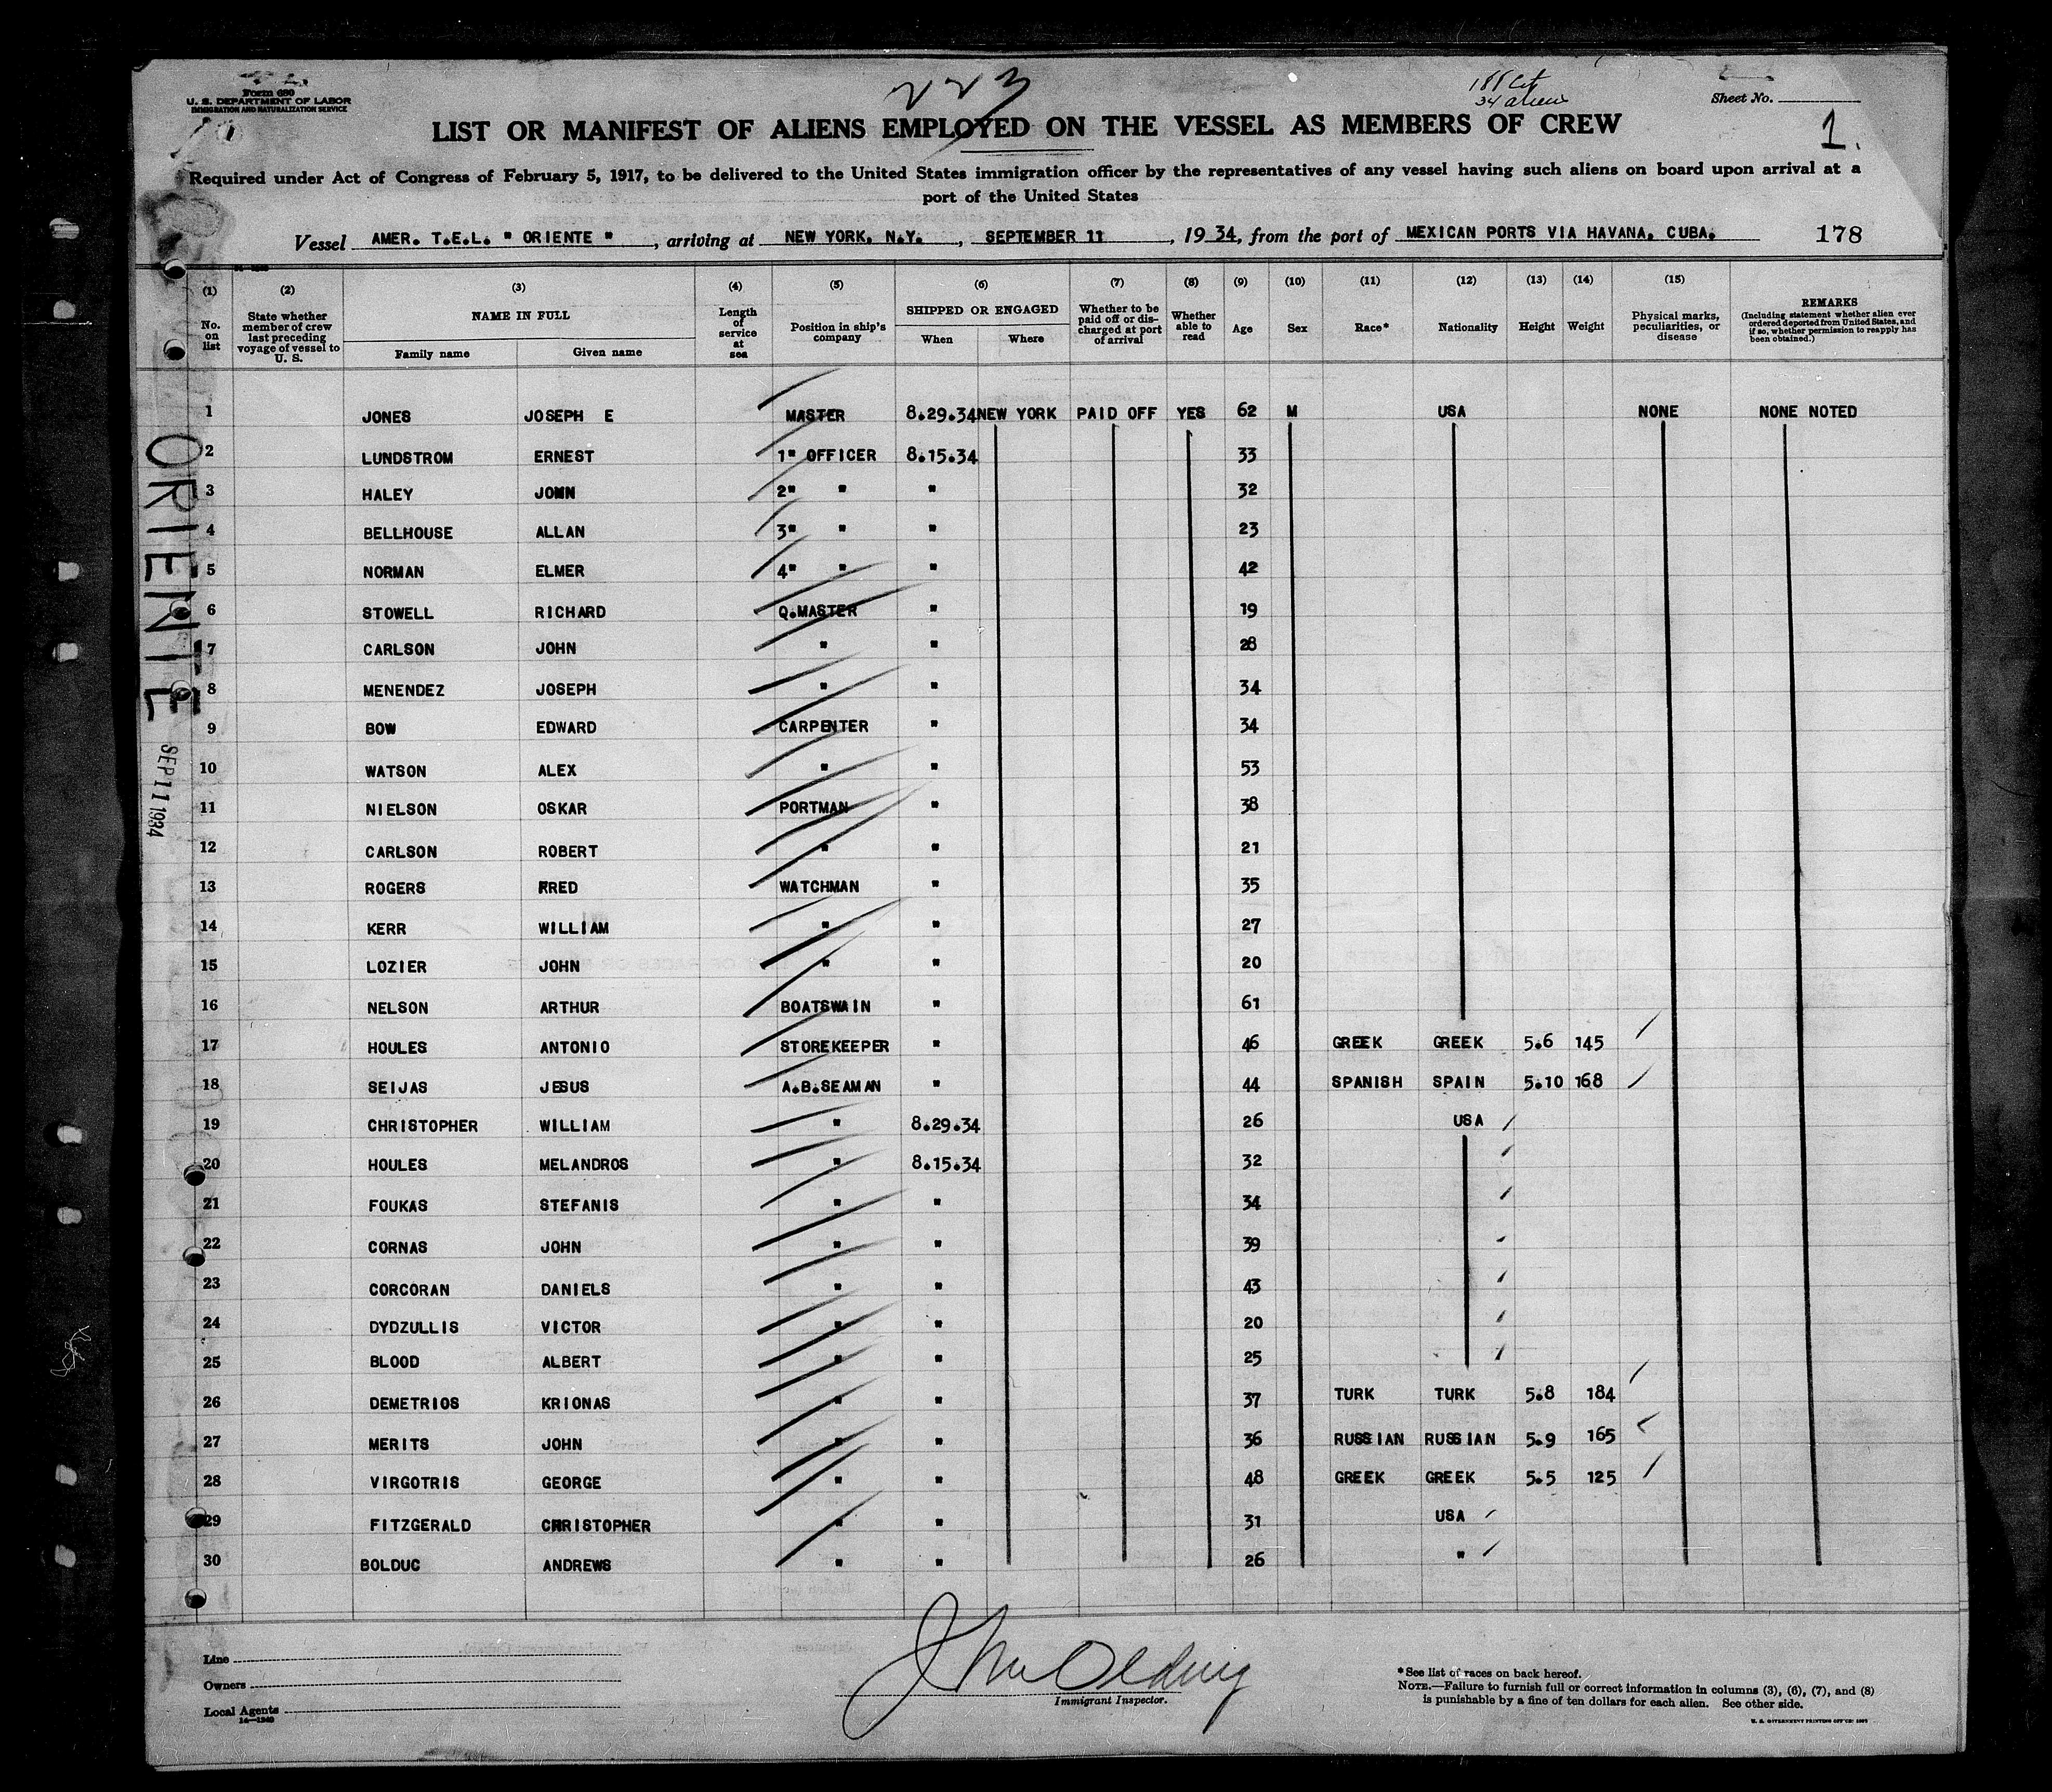 Form 680
U. S. DEPARTMENT OF LABOR
IMMIGRATION AND NATURALIZATION SERVICE
223
34 aliens
Sheet No.
1.
LIST OR MANIFEST OF ALIENS EMPLOYED ON THE VESSEL AS MEMBERS OF CREW
Required under Act of Congress of February 5, 1917, to be delivered to the United States immigration officer by the representatives of any vessel having such aliens on board upon arrival at a
port of the United States
Vessel AMER. T.E.L. " ORIENTE ", arriving at NEW YORK, N.Y., SEPTEMBER 11, 1934, from the port of MEXICAN PORTS VIA HAVANA, CUBA. 178
(1) No. on list
(2) State whether member of crew last preceding voyage of vessel to U. S.
(3) NAME IN FULL Family name Given name
(4) Length of service at sea
(5) Position in ship's company
(6) SHIPPED OR ENGAGED When Where
(7) Whether to be paid off or discharged at port of arrival
(8) Whether able to read
(9) Age
(10) Sex
(11) Race*
(12) Nationality
(13) Height
(14) Weight
(15) Physical marks, peculiarities, or disease
REMARKS (Including statement whether alien ever ordered deported from United States, and if so, whether permission to reapply has been obtained.)
1 JONES JOSEPH E MASTER 8.29.34 NEW YORK PAID OFF YES 62 M USA NONE NONE NOTED
2 LUNDSTROM ERNEST 1" OFFICER 8.15.34 33
3 HALEY JOHN 2" " " 32
4 BELLHOUSE ALLAN 3" " " 23
5 NORMAN ELMER 4" " " 42
6 STOWELL RICHARD Q.MASTER " 19
7 CARLSON JOHN " " 28
8 MENENDEZ JOSEPH " " 34
9 BOW EDWARD CARPENTER " 34
10 WATSON ALEX " " 53
11 NIELSON OSKAR PORTMAN " 38
12 CARLSON ROBERT " " 21
13 ROGERS FRED WATCHMAN " 35
14 KERR WILLIAM " " 27
15 LOZIER JOHN " " 20
16 NELSON ARTHUR BOATSWAIN " 61
17 HOULES ANTONIO STOREKEEPER " 46 GREEK GREEK 5.6 145
18 SEIJAS JESUS A.B.SEAMAN " 44 SPANISH SPAIN 5.10 168
19 CHRISTOPHER WILLIAM " 8.29.34 26 USA
20 HOULES MELANDROS " 8.15.34 32
21 FOUKAS STEFANIS " " 34
22 CORNAS JOHN " " 39
23 CORCORAN DANIELS " " 43
24 DYDZULLIS VICTOR " " 20
25 BLOOD ALBERT " " 25
26 DEMETRIOS KRIONAS " " 37 TURK TURK 5.8 184
27 MERITS JOHN " " 36 RUSSIAN RUSSIAN 5.9 165
28 VIRGOTRIS GEORGE " " 48 GREEK GREEK 5.5 125
29 FITZGERALD CHRISTOPHER " " 31 USA
30 BOLDUC ANDREWS " " 26 "
ORIENTE
SEP 11 1934
Line
Owners
Local Agents
14—1240
Immigrant Inspector.
*See list of races on back hereof.
NOTE.—Failure to furnish full or correct information in columns (3), (6), (7), and (8)
is punishable by a fine of ten dollars for each alien. See other side.